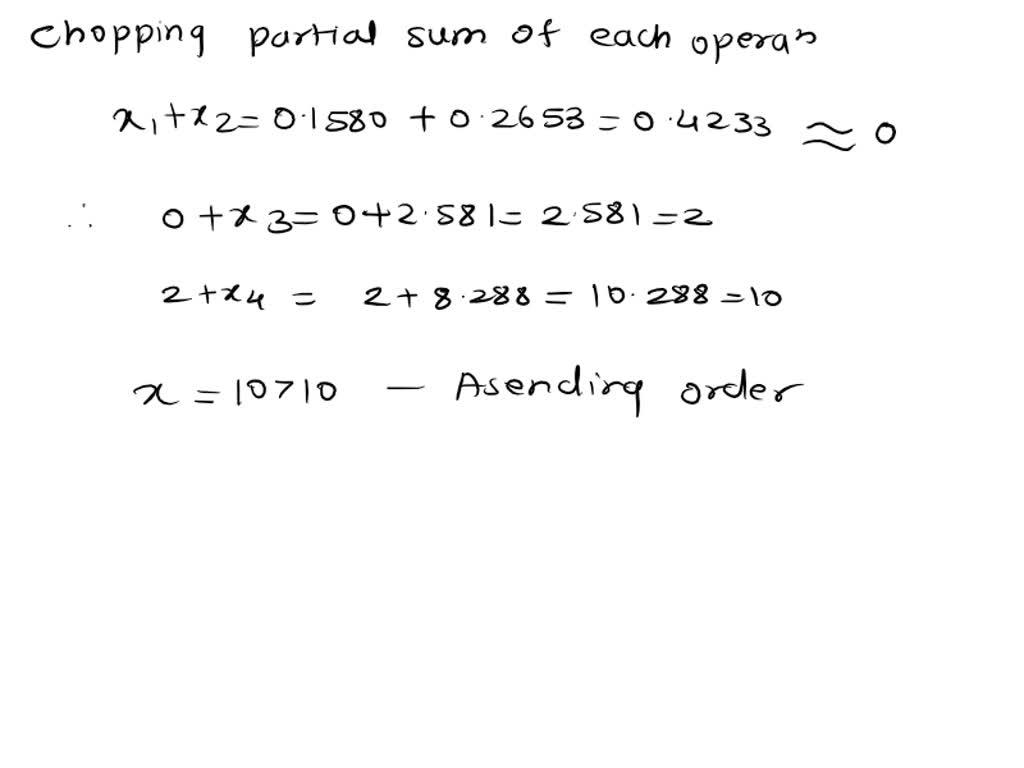 chopping partial sum of each operan
x₁+x₂= 0.1580 + 0.2653 = 0.4233 ≈ 0
∴ 0+x₃= 0+2.581= 2.581=2
2+x₄ = 2+8.288= 10.288=10
x = 10710 — Asending order